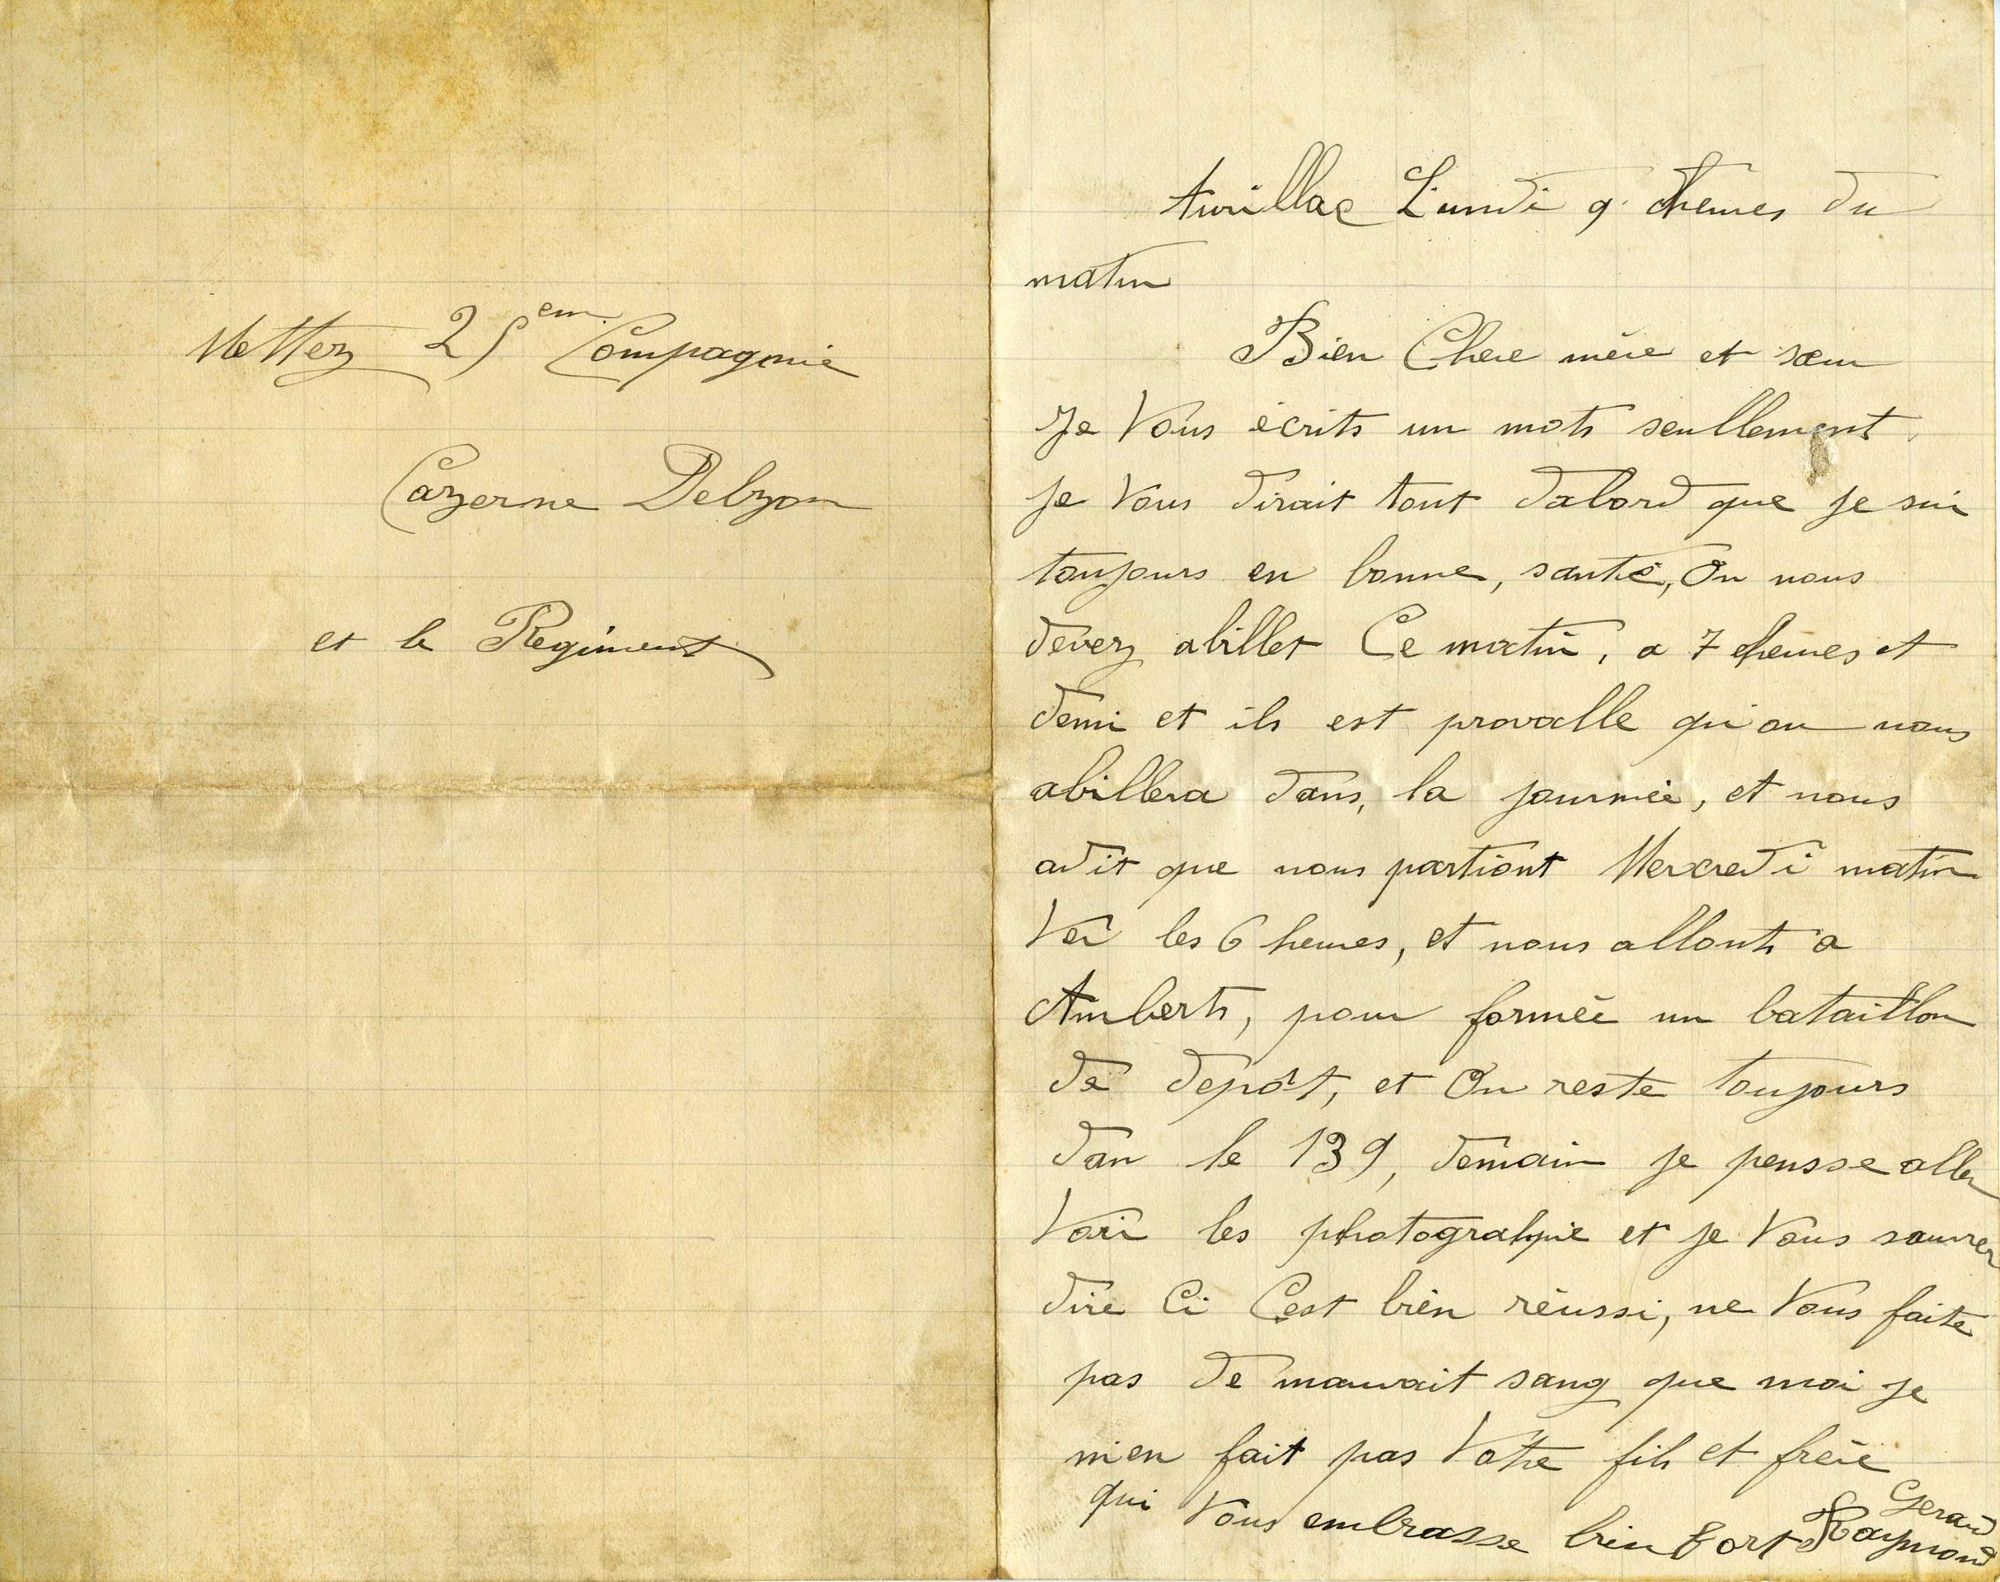 Mettez 25em Compagnie
Cazerne Delzon
et le Regiment
Aurillac Lundi 9 heures du
matin
Bien Chere mère et sœur
Je Vous écrits un mots seullement
je Vous dirait tout dabord que je sui
toujours en bonne, santé, On nous
devez abiller Ce matin, a 7 heures et
demi et ils est provable qu'on nous
abillera dans, la journée, et nous
adit que nous partiont Mercredi matin
Ver les 6 heures, et nous allonts a
Amberts, pour formée un bataillon
de depôt, et On reste toujours
dan le 139, demain je pensse aller
Voir les photograhpie et je Vous saurer
dire Ci Cest bien réussi, ne Vous faite
pas de mauvait sang que moi je
m'en fait pas Votre fils et frère
qui Vous embrasse bien fort Gerard
Raymond